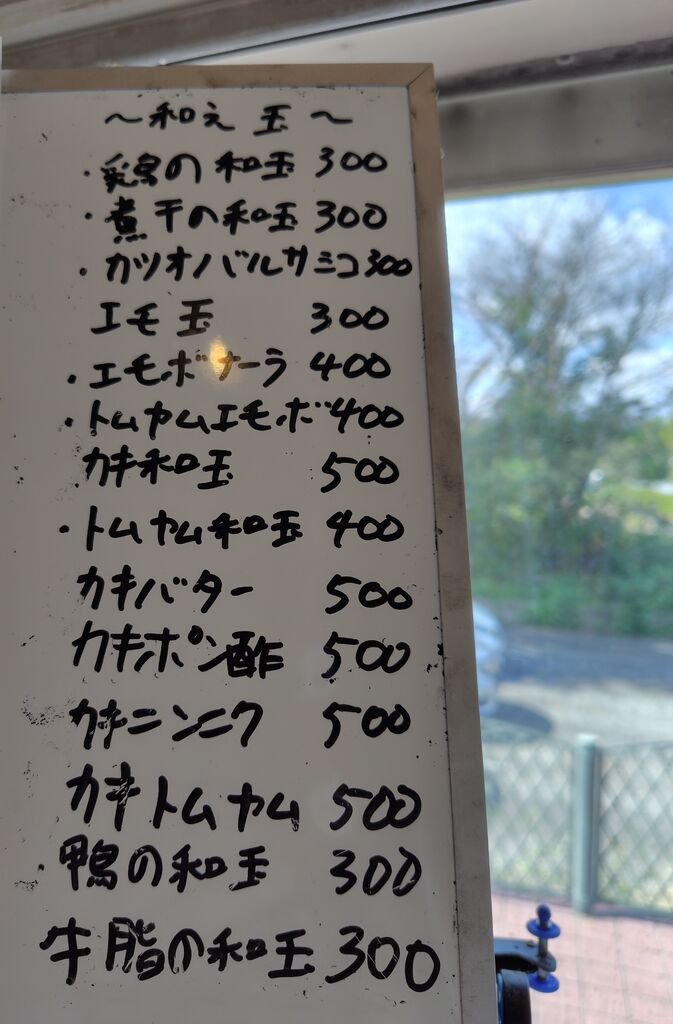 ～和え玉～
・鶏の和玉 300
・煮干の和玉 300
・カツオバルサミコ 300
エモ玉 300
・エモボナーラ 400
・トムヤムエモボ 400
カキ和玉 500
・トムヤム和玉 400
カキバター 500
カキポン酢 500
カキニンニク 500
カキトムヤム 500
・鴨の和玉 300
牛脂の和玉 300